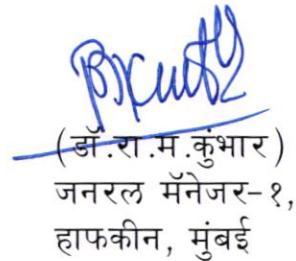 (डॉ.रा.म.कुंभार)
जनरल मॅनेजर-१,
हाफकीन, मुंबई